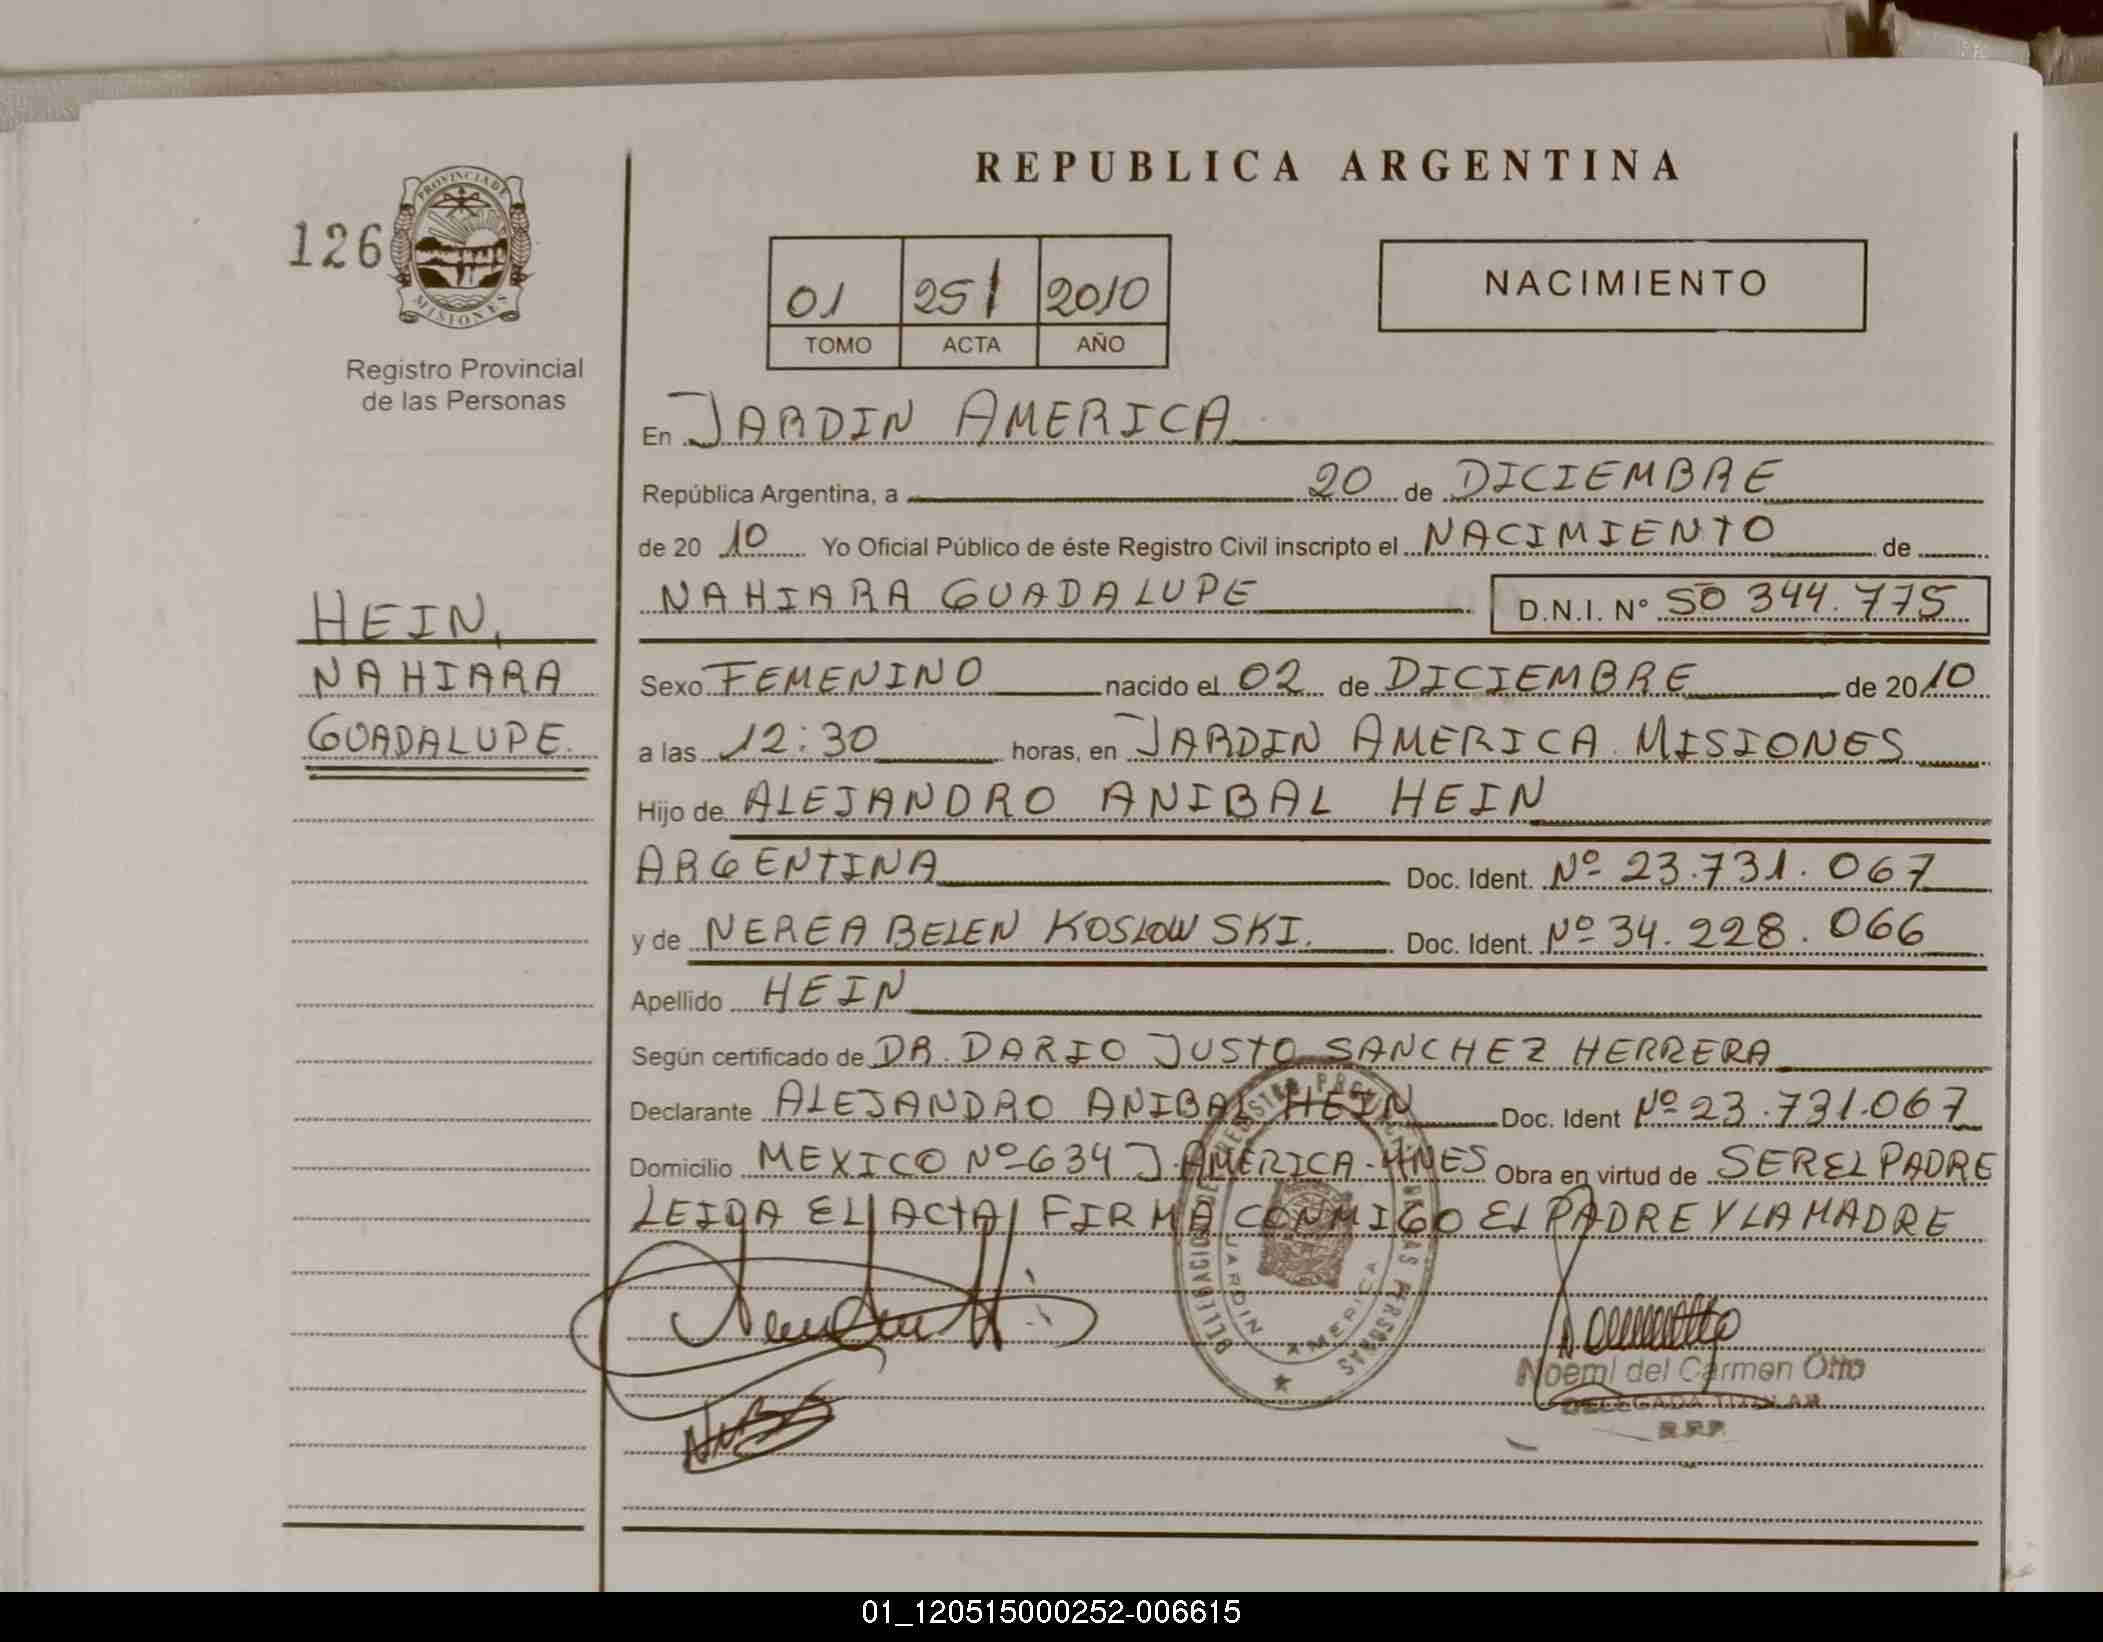 REPUBLICA ARGENTINA
126
PROVINCIA DE
MISIONES
Registro Provincial
de las Personas
01 251 2010
TOMO ACTA AÑO
NACIMIENTO
En JARDIN AMERICA
República Argentina, a 20 de DICIEMBRE
de 20 10 Yo Oficial Público de éste Registro Civil inscripto el NACIMIENTO de
NAHIARA GUADALUPE D.N.I. N° 50 344.775
HEIN,
NAHIARA
GUADALUPE.
Sexo FEMENINO nacido el 02 de DICIEMBRE de 2010
a las 12:30 horas, en JARDIN AMERICA MISIONES
Hijo de ALEJANDRO ANIBAL HEIN
ARGENTINA Doc. Ident. Nº 23.731.067
y de NEREA BELEN KOSLOWSKI. Doc. Ident. Nº 34.228.066
Apellido HEIN
Según certificado de DR. DARIO JUSTO SANCHEZ HERRERA
Declarante ALEJANDRO ANIBAL HEIN Doc. Ident Nº 23.731.067
Domicilio MEXICO Nº 634 J. AMERICA - MNES Obra en virtud de SER EL PADRE
LEIDA EL ACTA FIRMA CONMIGO EL PADRE Y LA MADRE
DELEGACION DE REGISTRO PROVINCIAL DE LAS PERSONAS
JARDIN AMERICA
Noemi del Carmen Otto
DELEGADA TITULAR
R.P.P.
01_120515000252-006615